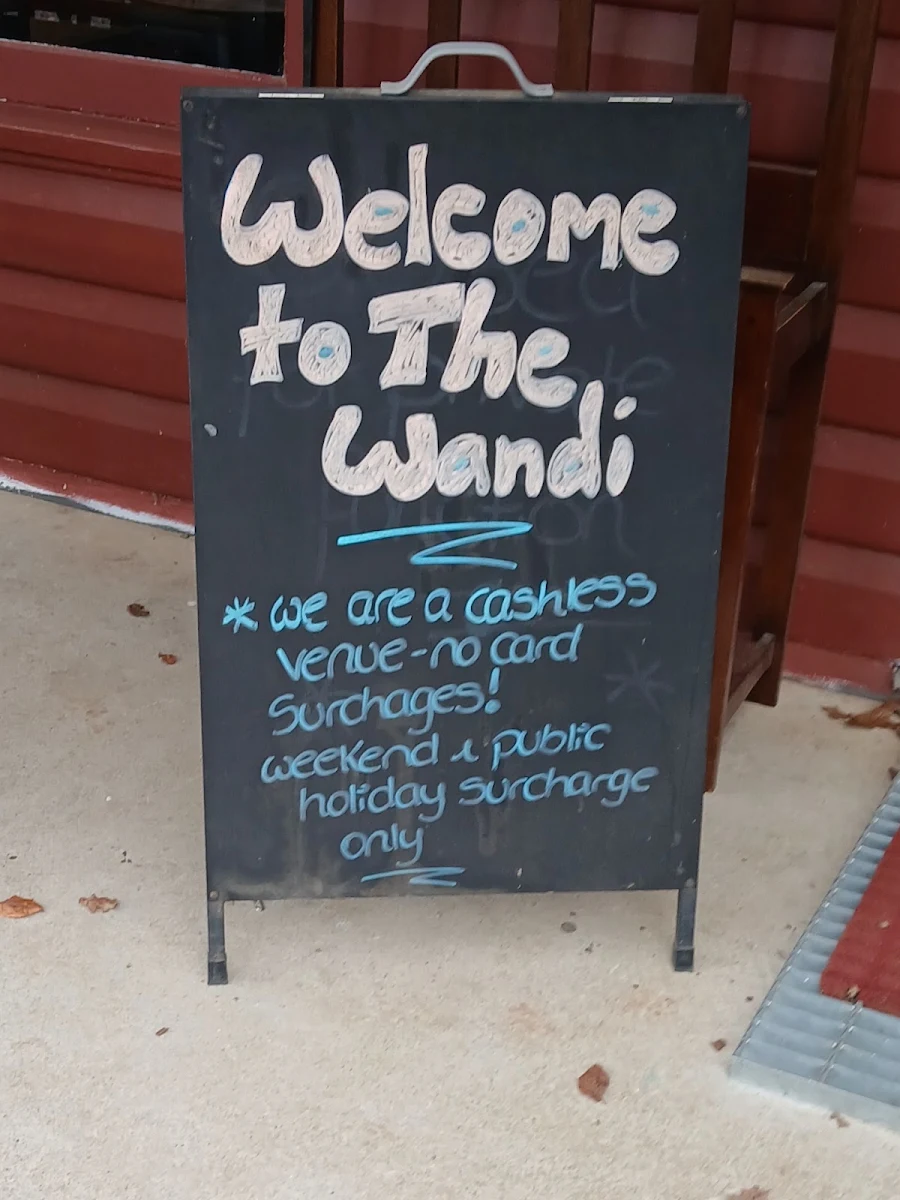 Welcome
to The
Wandi
* we are a cashless
venue - no card
Surchages!
weekend & public
holiday surcharge
only